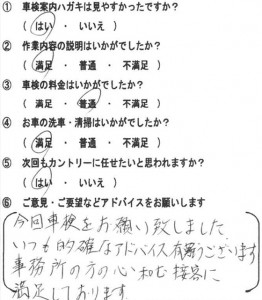 ① 車検案内ハガキは見やすかったですか？
（ はい ・ いいえ ）
② 作業内容の説明はいかがでしたか？
（ 満足 ・ 普通 ・ 不満足 ）
③ 車検の料金はいかがでしたか？
（ 満足 ・ 普通 ・ 不満足 ）
④ お車の洗車・清掃はいかがでしたか？
（ 満足 ・ 普通 ・ 不満足 ）
⑤ 次回もカントリーに任せたいと思われますか？
（ はい ・ いいえ ）
⑥ ご意見・ご要望などアドバイスをお願いします
今回車検をお願い致しました
いつも的確なアドバイス有難うございます
事務所の方の心和む接客に
満足しております。